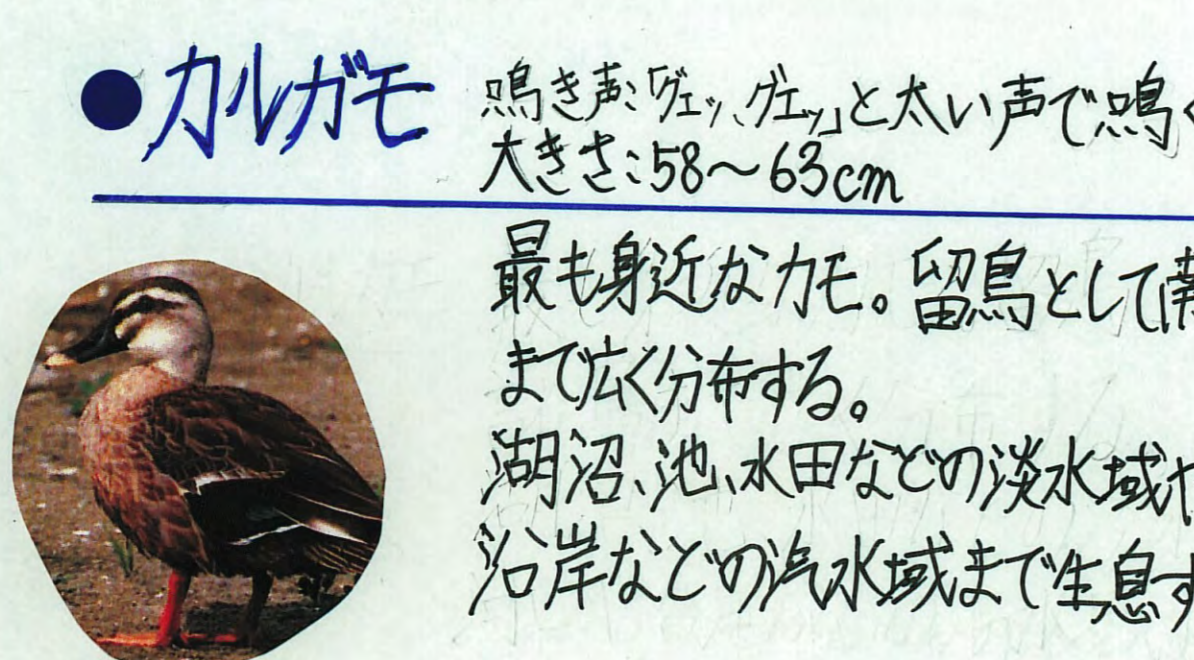 ●カルガモ
鳴き声:「グェッ、グェッ」と太い声で鳴く
大きさ:58〜63cm
最も身近なカモ。留鳥として
まで広く分布する。
湖沼、池、水田などの淡水域や
沿岸などの汽水域まで生息す